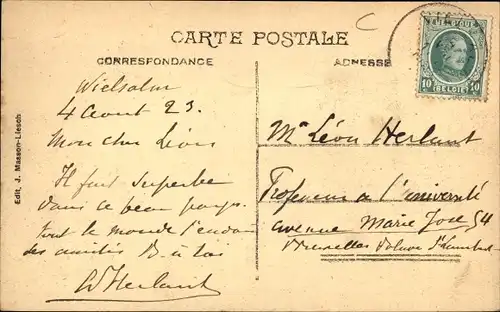 CARTE POSTALE
CORRESPONDANCE
ADRESSE
BELGIQUE
10 BELGIË 10
Edit. J. Masson-Liesch
Vielsalm
4 Aout 23.
Mon cher Léon
Il fait superbe
dans ce beau pays.
tout le monde
des amitiés à tous
Herlant
Mr Léon Herlant
Professeur a l'université
avenue Marie José 54
Bruxelles Woluwe St Lambert